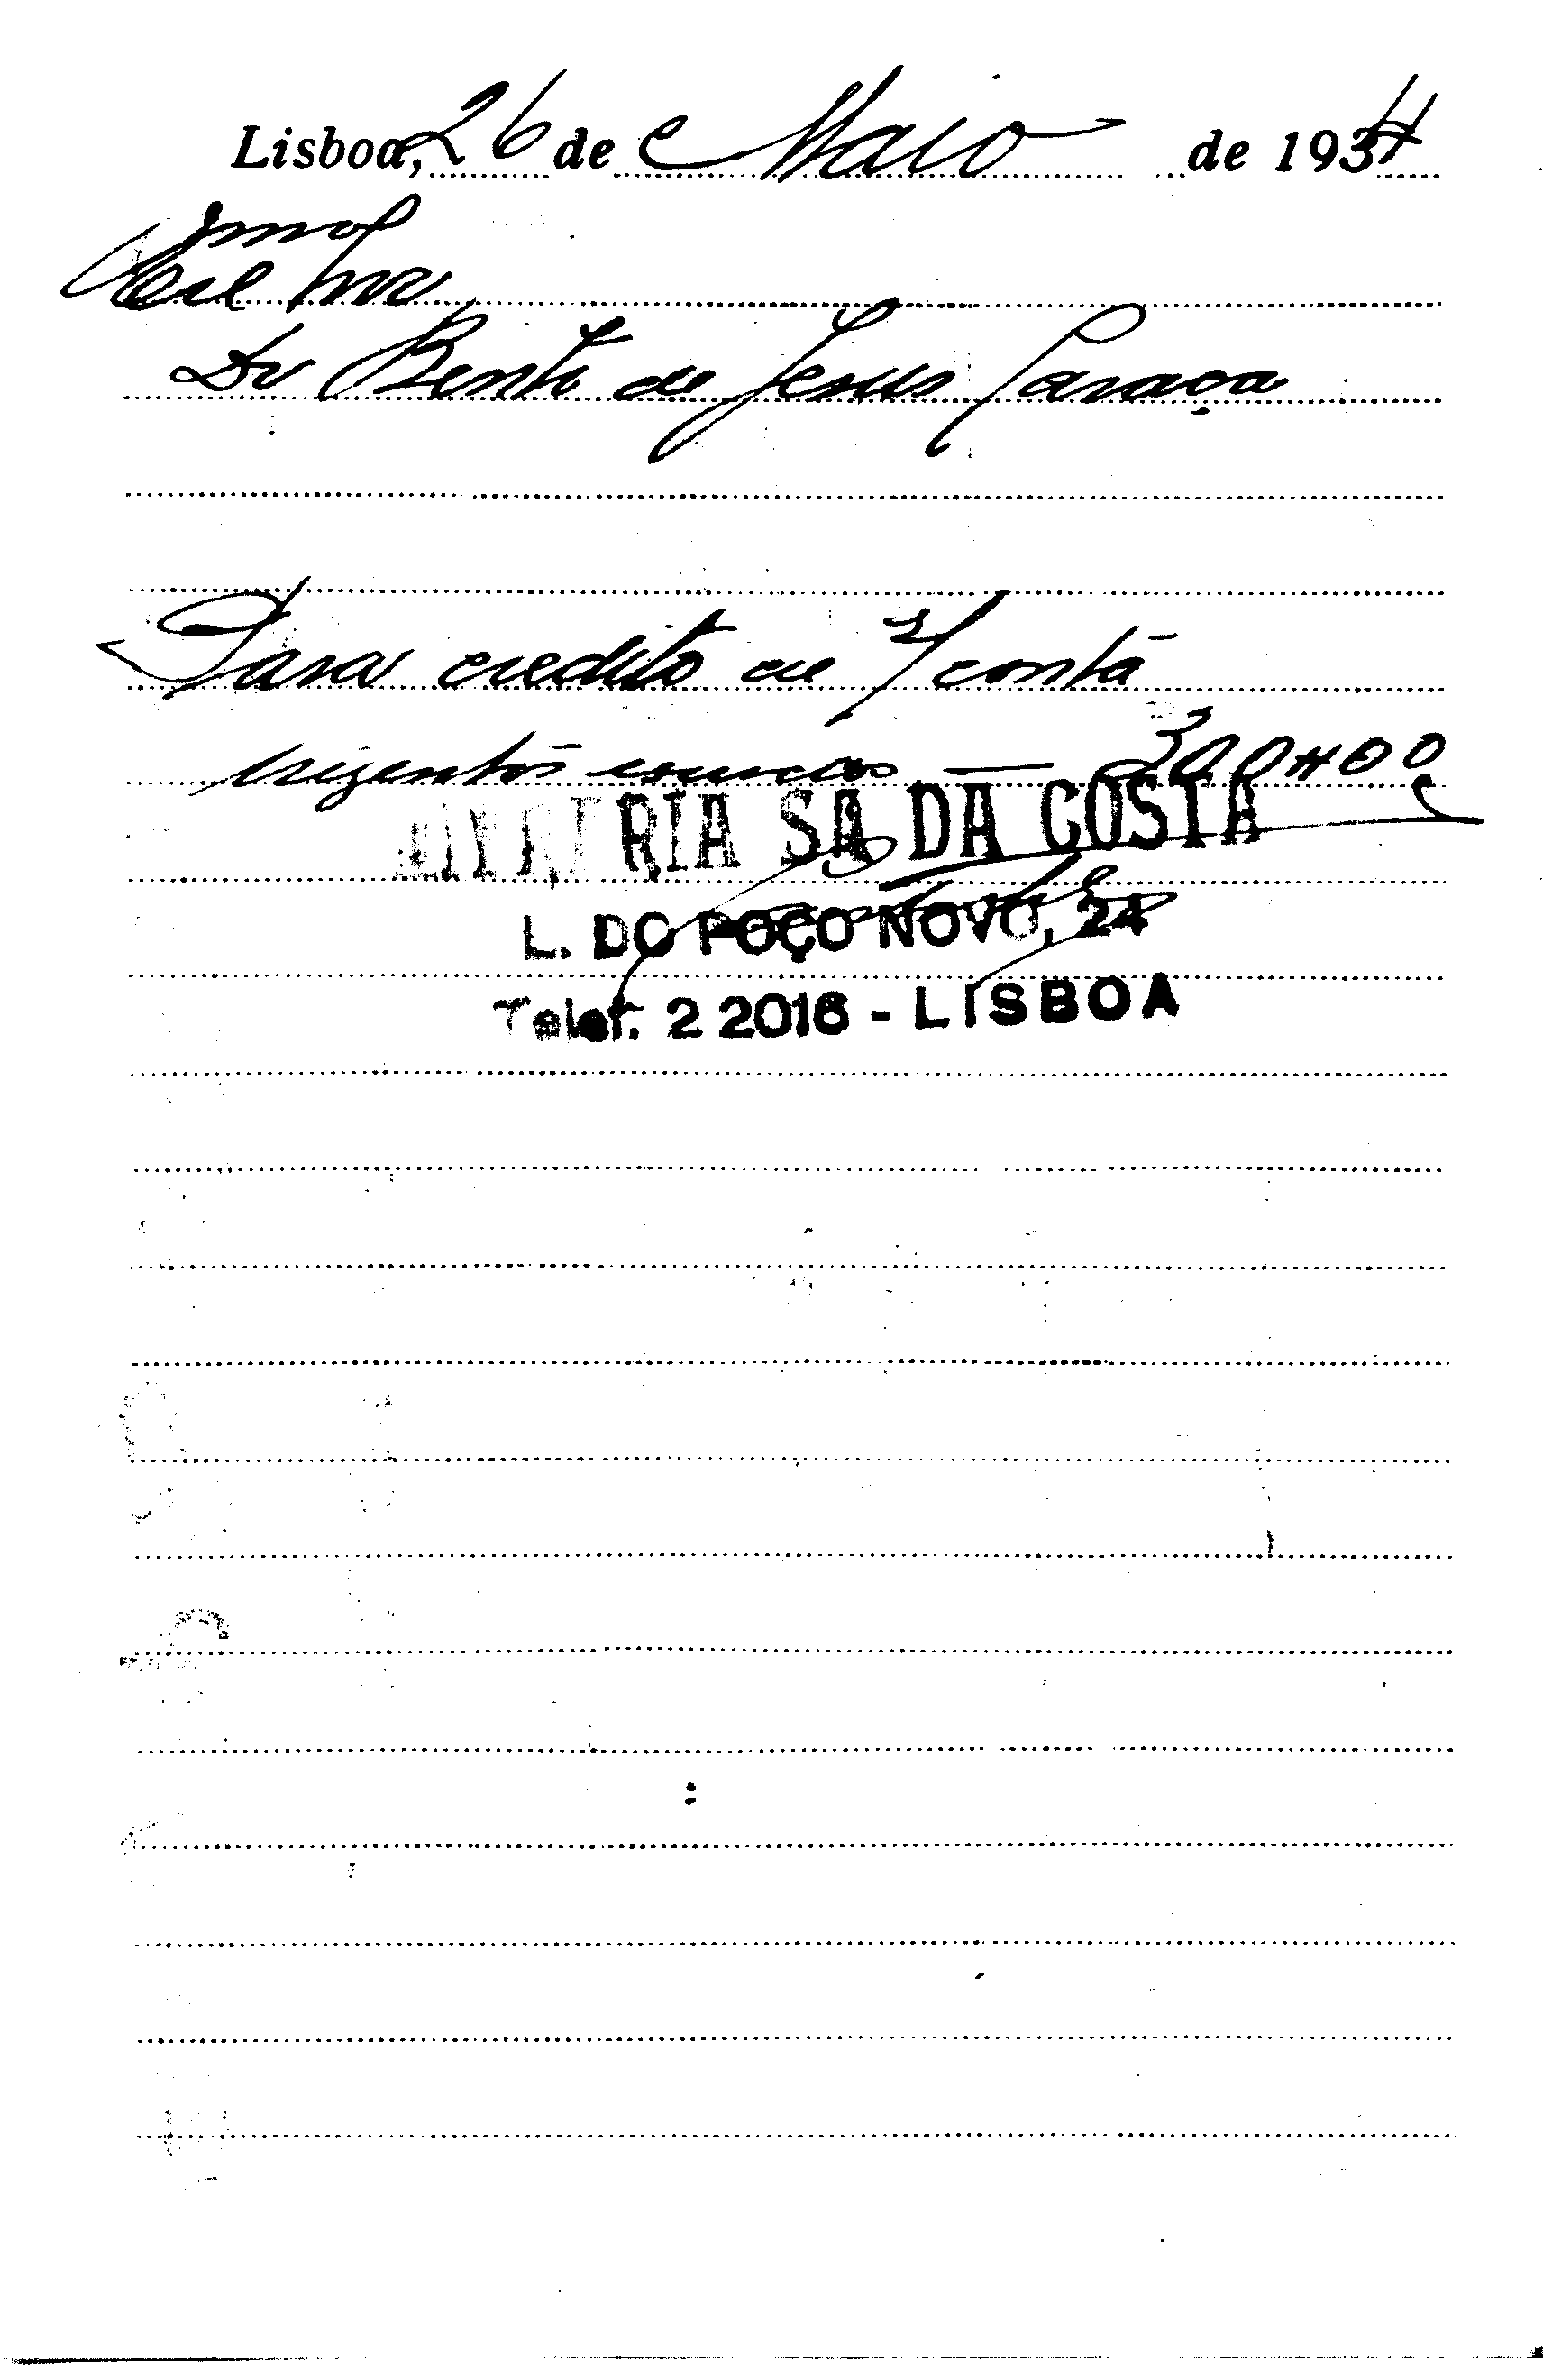 Lisboa, 26 de Maio de 1934
Exmo
Sr
Dr Bento de Jesus Caraça
Para credito de s/ conta
trezentos escudos — 300#00
LIVRARIA SÁ DA COSTA
L. DO POÇO NOVO, 24
Telef. 2 2016 - LISBOA